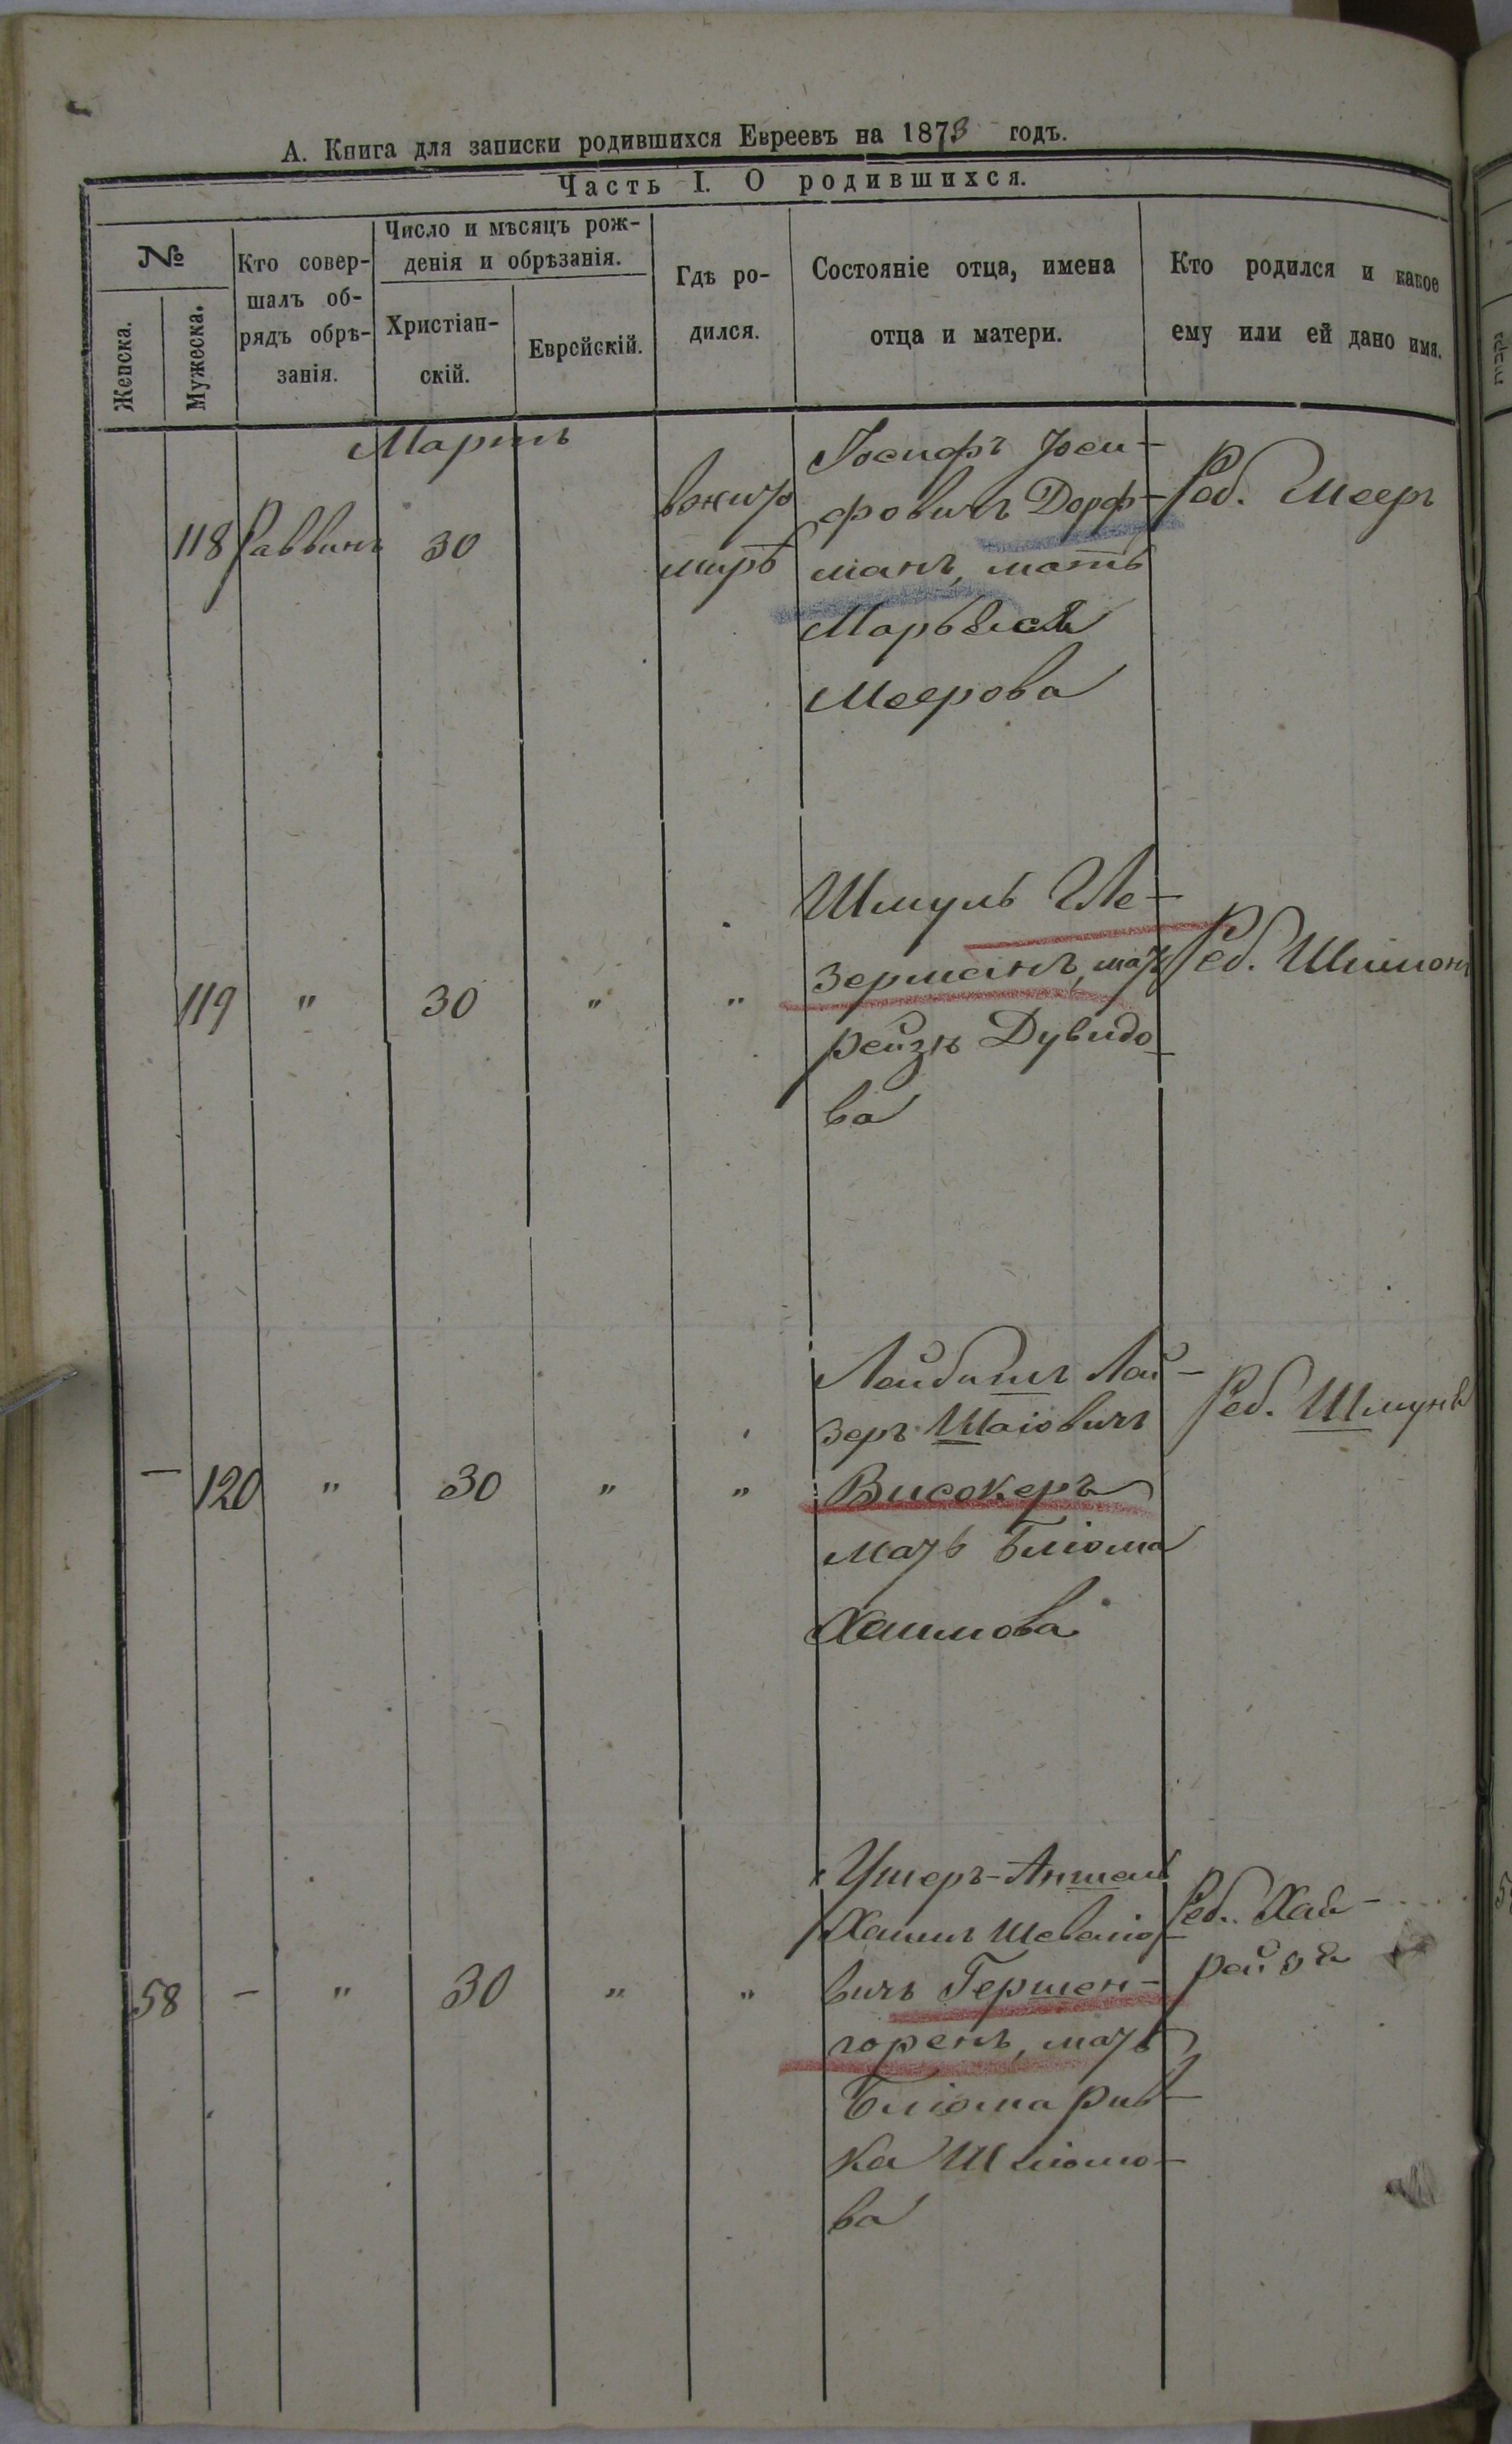 А. Книга для записки родившихся Евреевъ на 1873 годъ.
Часть I. О родившихся.
№
Женска.
Мужеска.
Кто совер-
шалъ об-
рядъ обрѣ-
занія.
Число и мѣсяцъ рож-
денія и обрѣзанія.
Христіан-
скій.
Еврейскій.
Гдѣ ро-
дился.
Состояніе отца, имена
отца и матери.
Кто родился и какое
ему или ей дано имя.
Мартъ
118 Раввинъ 30
вжито
мирѣ
Іосифъ Іоси-
фовичъ Дорф-
манъ, мать
Марьяся
Меерова
Реб. Мееръ
119 " 30 " "
Шмуль Гле-
зерманъ, мать
Рейзя Дувидо-
ва
Реб. Шимонъ
— 120 " 30 " "
Лейбишъ Лей-
зеръ Шаіовичъ
Високеръ
мать Блюма
Хаимова
Реб. Шмуль
58 - " 30 " "
Ушеръ-Аншель
Хаимъ
вичъ Гершен-
горенъ, мать
Бліома Рив-
ка Шліомо-
ва
Реб. Хая-
рейзя